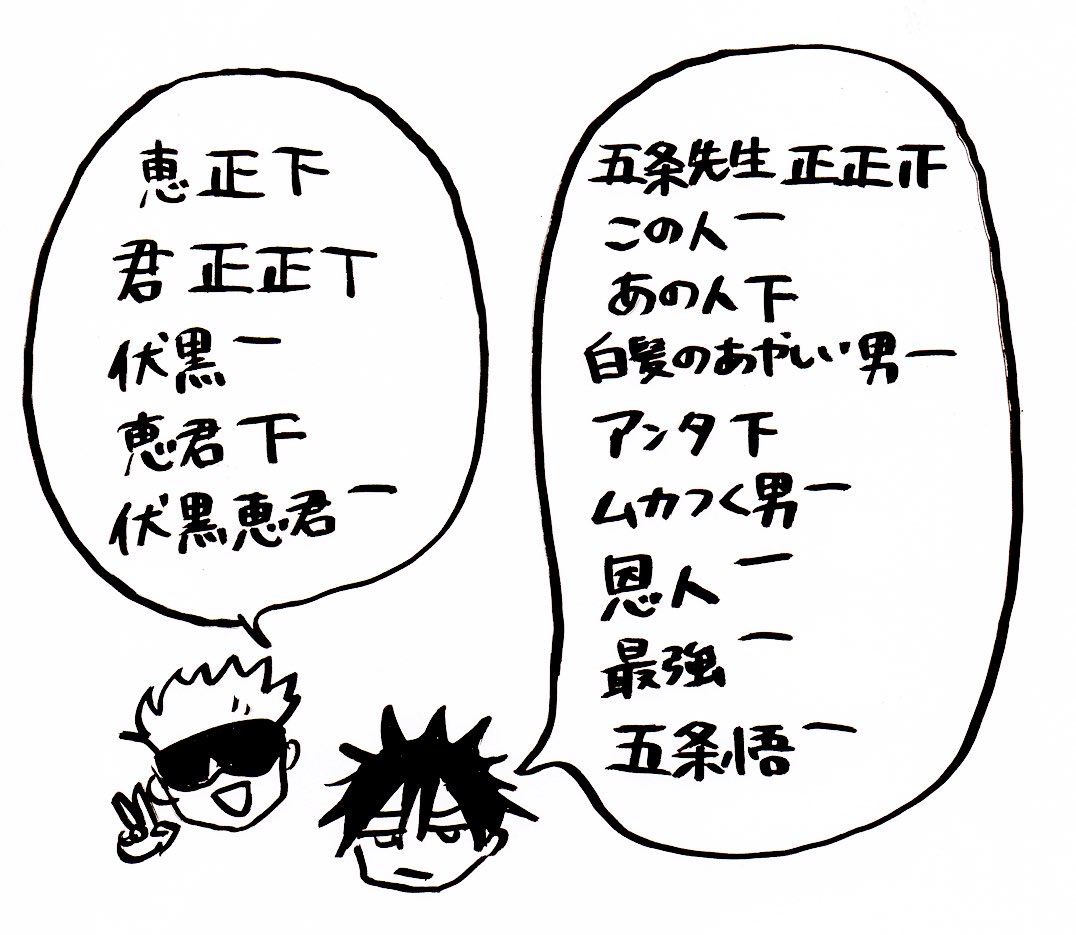 恵 正下
君 正正丅
伏黒 一
恵君 下
伏黒恵君 一
五条先生 正正正
この人 一
あの人 下
白髪のあやしい男 一
アンタ 下
ムカつく男 一
恩人 一
最強 一
五条悟 一